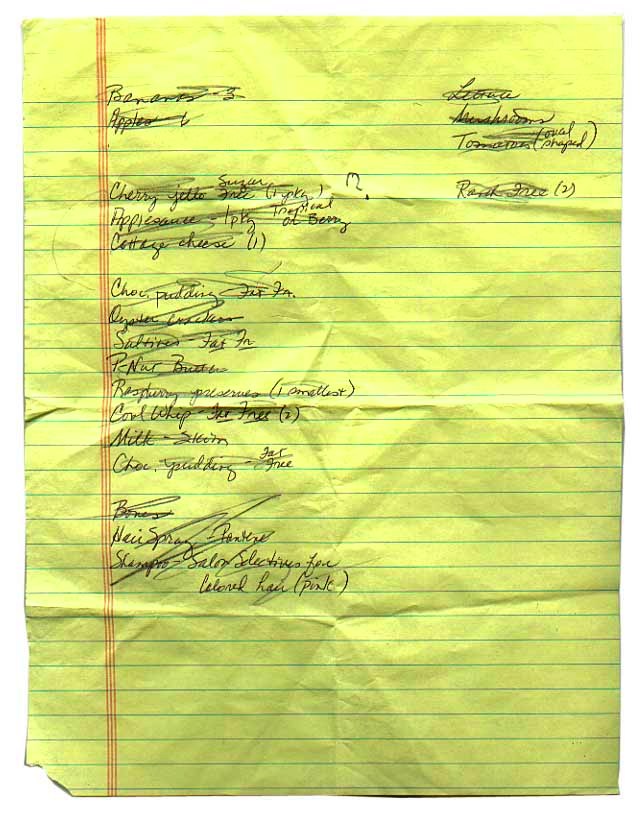 Bananas - 3
Apples - 6
Cherry jello Sugar Free (1 pkg) ?
Applesauce - 1 pkg Tropical or Berry
Cottage cheese (1)
Choc. pudding - Fat Fr.
Oyster crackers
Saltines - Fat Fr
P-Nut Butter
Raspberry preserves (1 smallest)
Cool Whip - Fat Free (2)
Milk - Skim
Choc. pudding - Fat Free
Bones
Hair Spray - Pantene
Shampoo - Salon Selectives for
Colored hair (pink)
Lettuce
Mushrooms
Tomatoes (oval shaped)
Ranch Free (2)